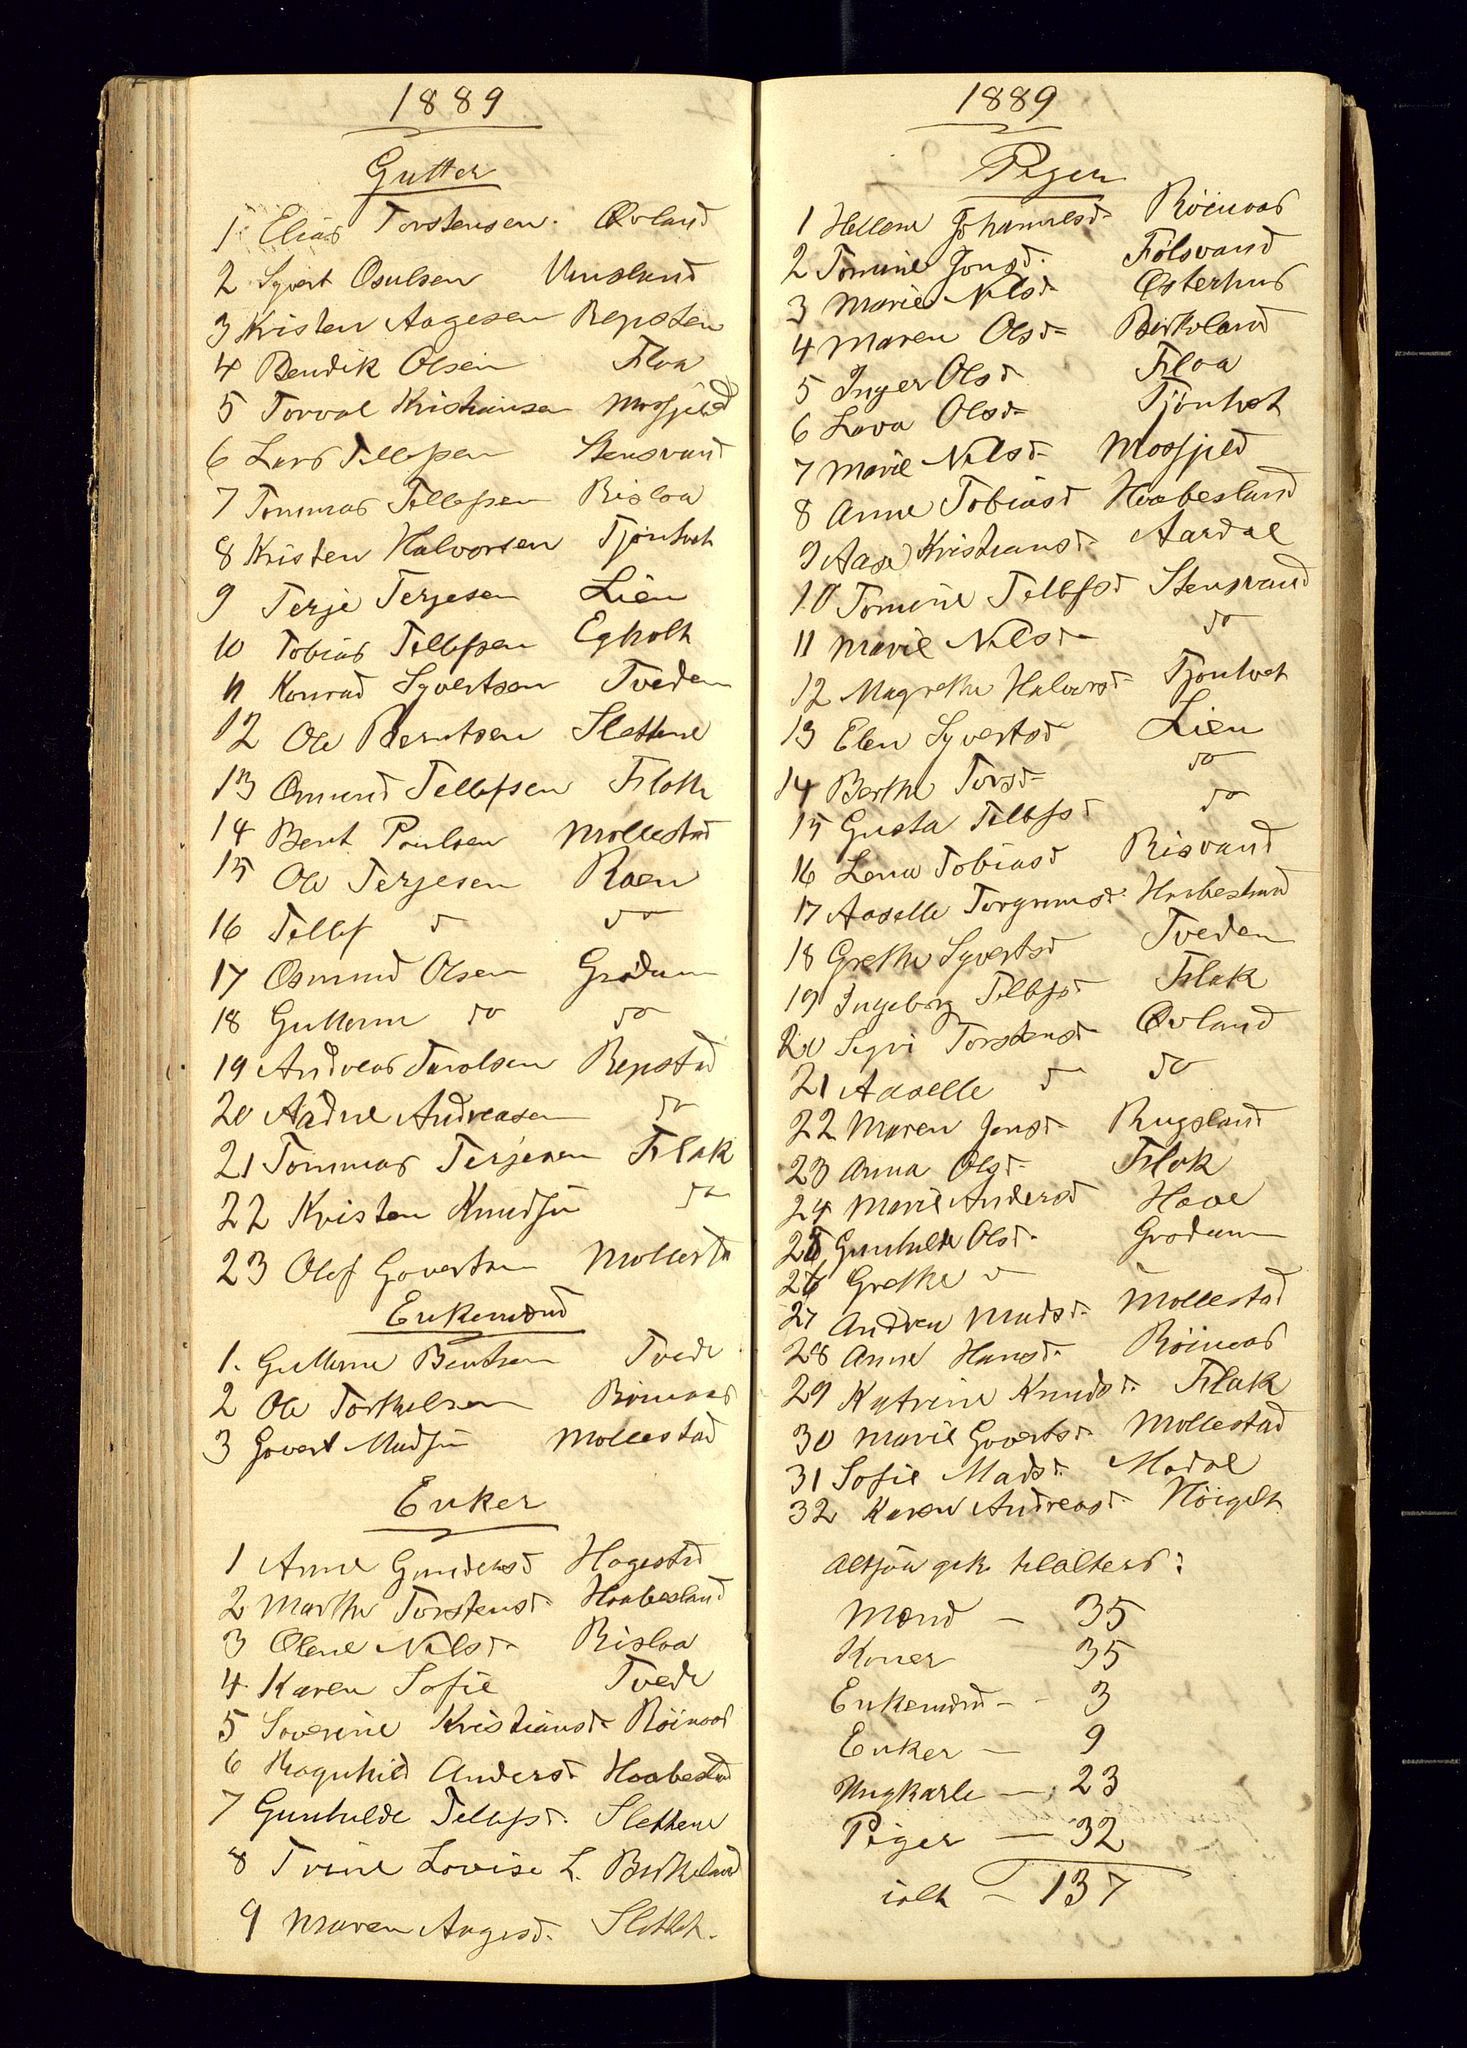 1889
Gutter
1 Elias Torstensen. Øvland
2 Syvert Osulsen Unusland
3 Kristen Aagesen Repsten
4 Bendik Olsen Floa
5 Torval Kristiansen Mosfjeld
6 Lars Tellefsen Stensvand
7 Tommas Tellefsen Risloa
8 Kristen Halvorsen Tjöntvet
9 Terje Terjesen Lien
10 Tobias Tellefsen Egholt
11 Konrad Syvertsen Tveden
12 Ole Berntsen Slettene
13 Omund Tellefsen Flath
14 Bent Poulsen Mollestad
15 Ole Terjesen Raen
16 Tellef d do
17 Osmund Olsen Grödum
18 Guttorm do do
19 Andreas Tarolsen Repstad
20 Aadne Andreasen do
21 Tommas Terjesen Flak
22 Kristen Knudsen do
23 Olef Govertsen Mollesta
Enkemænd
1. Guttorm Bentsen Tvede
2 Ole Torkelsen Röinaas
3 Govert Madsen Mollestad
Enker
1 Anne Gundersd Hagestad
2 Marthe Torstensd. Haabesland
3 Olene Nilsd. Risloa
4. Karen Sofie Tvede
5 Soverine Kristiansd. Röinaas
6 Ragnhild Andersd. Haabeslad
7 Gunhilde Tellefsd. Slettene
8 Trine Lovise L. Birkeland
9 Maren Aagesd. Slottet.
1889
Piger
1 Hellene Johannesd. Röinaas
2 Tomine Jonsd. Fölsvand
3 Marie Nilsd. Østerhus
4 Maren Olsd. Birkeland
5 Inger Olsd Floa
6 Lava Olsd. Tjöntvet
7 Marie Nilsd. Mosfjeld
8 Anne Tobiasd Haabesland
9 Aase Kristiansd. Aardal
10 Tomine Tellefsd Stensvand
11 Marie Nilsd. do
12 Magrethe Halvorsd. Tjöntvet
13 Elen Syvertsd Lien
14 Berthe Torsd. do
15 Gusta Tellefsd do
16 Lena Tobiasd Risvand
17 Aaselle Torgrimsd. Haabesland
18 Grethe Syvertsd Tveden
19 Ingeborg Tellefsd. Flak
20 Sigri Torstensd Øvland
21 Aaselle d do
22 Maren Jensd. Rugsland
23 Anna Olsd. Flak
24 Marie Andersd Have
25 Gunhilde Olsd. Grödum
26 Grethe d
27 Andrea Madsd. Mollestad
28 Anne Hansd. Röinaas
29 Katrine Knudsd. Flak
30 Marie Govertsd. Mollestad
31 Sofie Madsd. Modal
32 Karen Andreasd. Höigilt
Altsaa gik tilalters:
Mænd — 35
Koner 35
Enkemænd - - 3
Enker — 9
Ungkarle — 23
Piger — 32
ialt — 137